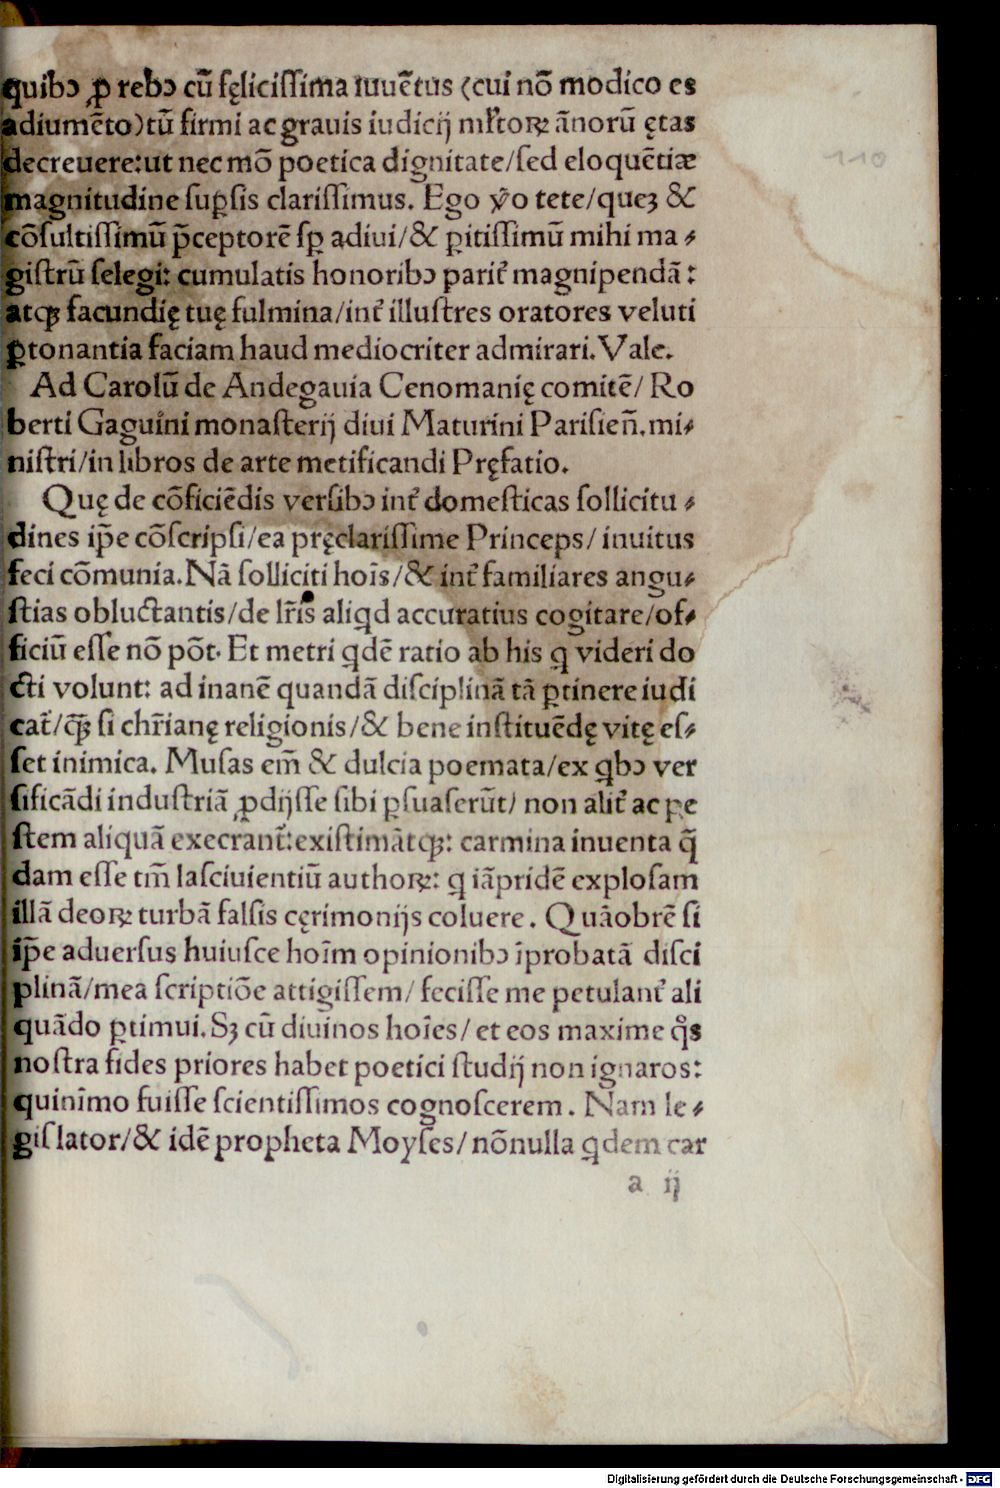 quibꝰ ꝓ rebꝰ cū fęlicissima iuuētus (cui nō modico es
adiumēto) tū firmi ac grauis iudicij mĺtoꝝ ānorū ętas
decreuere: ut nec mō poetica dignitate/ sed eloquētiæ
magnitudine suꝑsis clarissimus. Ego v̊o tete/ queꝫ &
cōsultissimū p̄ceptorē sꝑ adiui/ & ꝑitissimū mihi ma⸗
gistrū selegi: cumulatis honoribꝰ parit̉ magnipendā:
atqꝫ facundię tuę fulmina/ int̉ illustres oratores veluti
ꝑtonantia faciam haud mediocriter admirari. Vale.
Ad Carolū de Andegauia Cenomanię comitē/ Ro
berti Gaguini monasterij diui Maturini Parisieñ. mi⸗
nistri/ in libros de arte metificandi Pręfatio.
Quę de cōficiēdis versibꝰ int̉ domesticas sollicitu⸗
dines ip̄e cōscripsi/ ea pręclarissime Princeps/ inuitus
feci cōmunia. Nā solliciti hoīs/ & int̉ familiares angu⸗
stias obluctantis/ de lr̄is aliqd accuratius cogitare/ of⸗
ficiū esse nō pōt. Et metri qdē ratio ab his q videri do
cti volunt: ad inanē quandā disciplinā tā ꝑtinere iudi
cat̉/ q̄ꝫ si chr̄ianę religionis/ & bene instituēdę vitę es⸗
set inimica. Musas em̄ & dulcia poemata/ ex qbꝰ ver
sificādi industriā ꝓdijsse sibi ꝑsuaserūt/ non alit̉ ac pe
stem aliquā execrant̉: existimātqꝫ: carmina inuenta q̄
dam esse tm̄ lasciuientiū authoꝝ: q iāpridē explosam
illā deoꝝ turbā falsis cęrimonijs coluere. Quāobrē si
ip̄e aduersus huiusce hoīm opinionibꝰ īprobatā disci
plinā/ mea scriptiōe attigissem/ fecisse me petulant̉ ali
quādo ꝑtimui. Sꝫ cū diuinos hoīes/ et eos maxime qͦs
nostra fides priores habet poetici studij non ignaros:
quinīmo fuisse scientissimos cognoscerem. Nam le⸗
gislator/ & idē propheta Moyses/ nōnulla qdem car
a ij
110
Digitalisierung gefördert durch die Deutsche Forschungsgemeinschaft - DFG